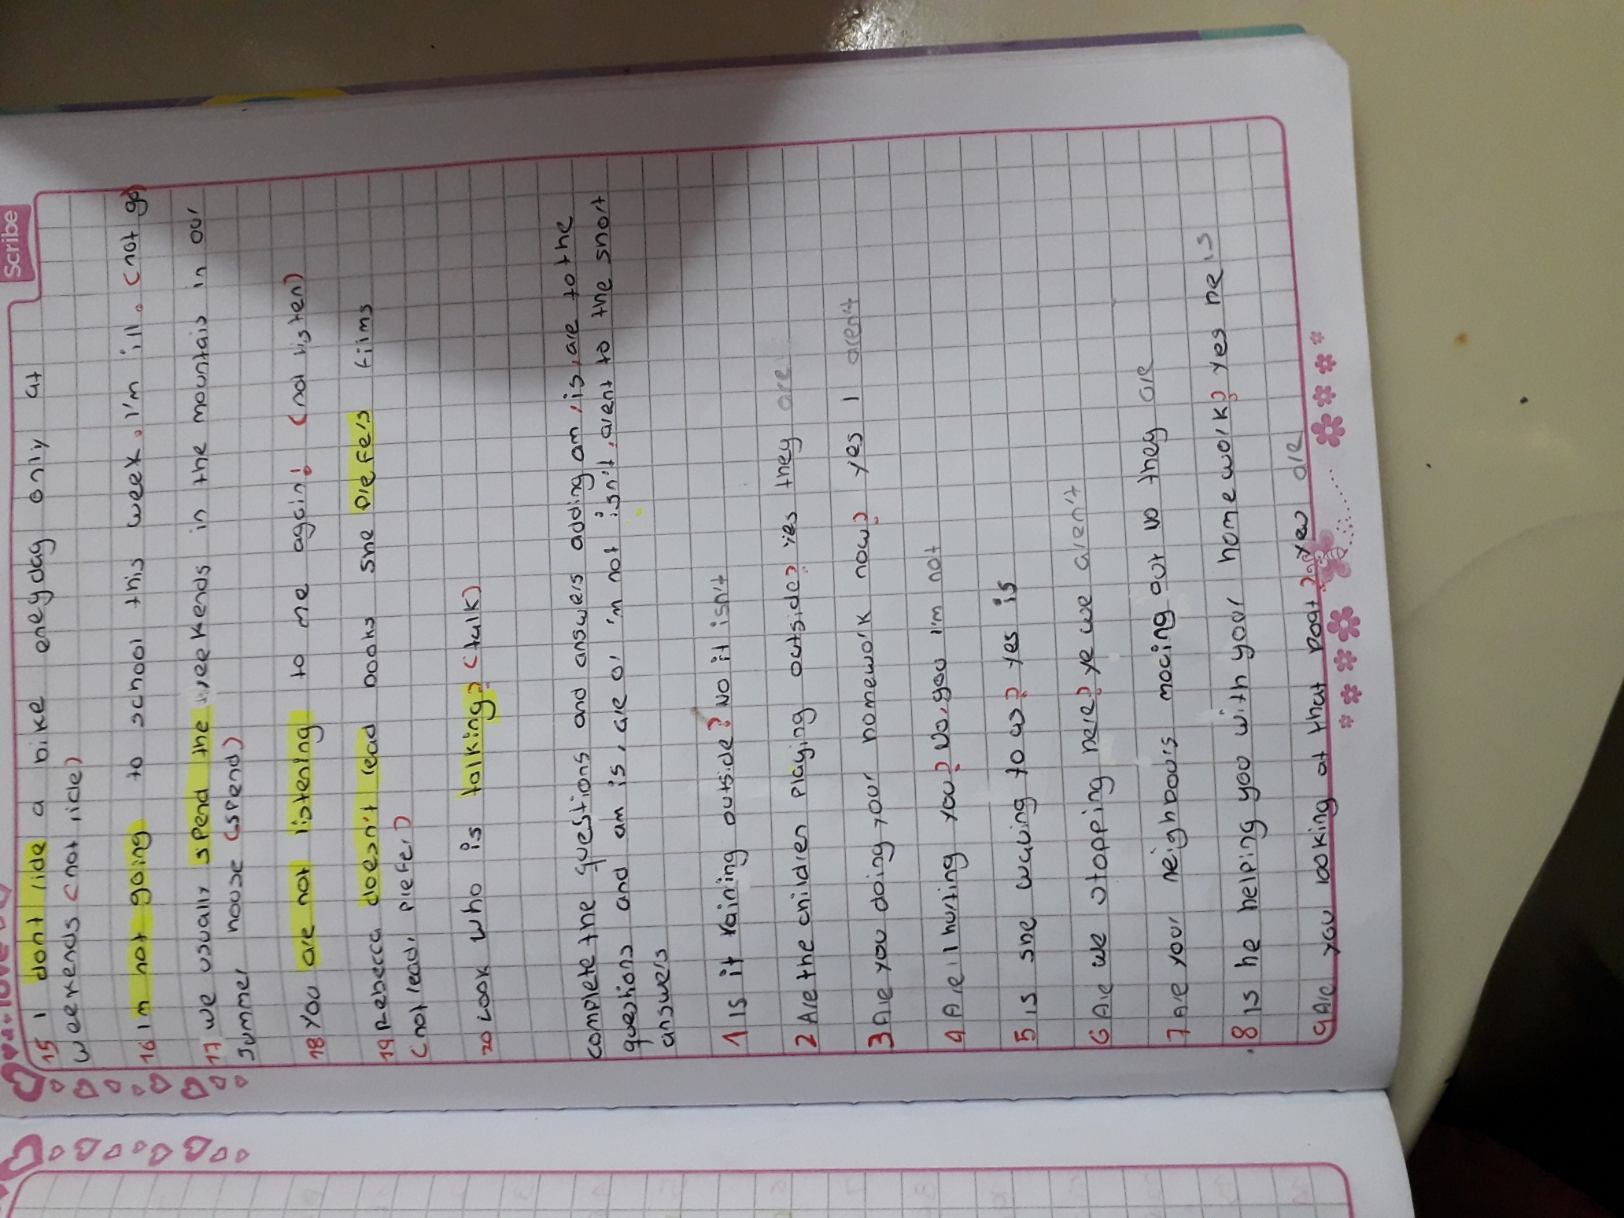 scribe
15 I dont ride a bike eneyday only at
weekends (not ride)
16 Im not going to school this week. I'm ill. (not go)
17 we usuall spend the weekends in the mountais in our
summer house (spend)
18 You are not listening to me again! (not listen)
19 Rebecca doesn't read books she prefers films
(not read, prefer)
20 Look who is talking? (talk)
complete the questions and answers adding am, is, are to the
questions and am is, are or 'm not isn't, arent to the snort
answers
1 Is it raining outside? No it isn't
2 Are the children playing outside? Yes they are
3 Are you doing your homework now? yes I aren't
4 Are I hurting you? No, you I'm not
5 Is she waving to us? Yes is
6 Are we stopping here? ye we aren't
7 Are your neighbours mocing out No they are
8 Is he helping you with your homework? Yes he is
9 Are you looking at that boat? are